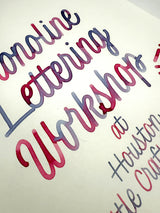 onoline
Lettering
Workshop
at
Houston
ttle Craf